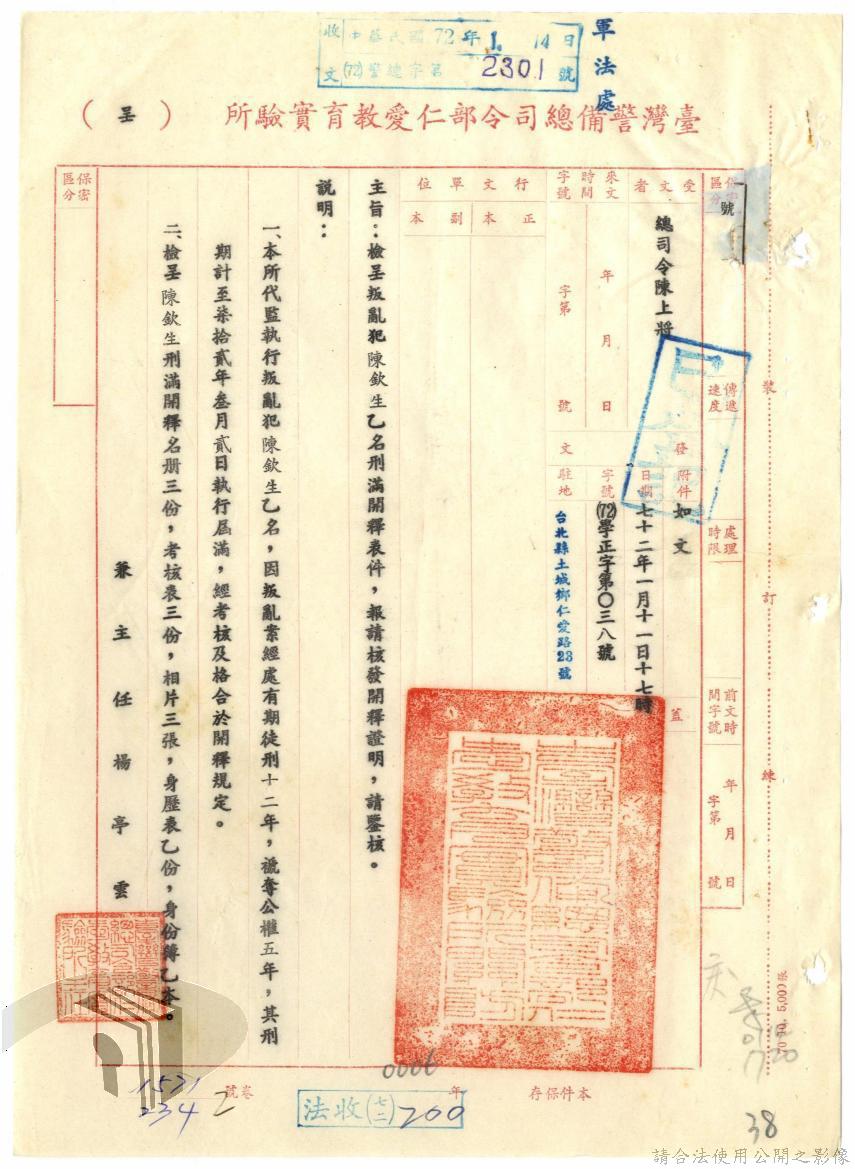 軍法處
收文 中華民國72年1月14日
(72)警總字第2301號
臺灣警備總司令部仁愛教育實驗所（呈）
保密區分
號
傳遞速度
處理時限
前文時間字號
年月日
字第號
受文者
總司令陳上將
附件
如文
來文
時間
年月日
字號
字第號
發文
日期
七十二年一月十一日十七時
字號
(72)學正字第〇三八號
駐地
台北縣土城鄉仁愛路23號
蓋
行文單位
正本
副本
主旨：檢呈叛亂犯陳欽生乙名刑滿開釋表件，報請核發開釋證明，請鑒核。
說明：
一、本所代監執行叛亂犯陳欽生乙名，因叛亂案經處有期徒刑十二年，褫奪公權五年，其刑
期計至柒拾貳年叁月貳日執行屆滿，經考核及格合於開釋規定。
二、檢呈陳欽生刑滿開釋名册三份，考核表三份，相片三張，身歷表乙份，身份簿乙本。
兼主任楊亭雲
保密區分
裝訂線
5,000張
0006
本件保存
年
卷號
1571
234
2
法收(七二)200
38
請合法使用公開之影像